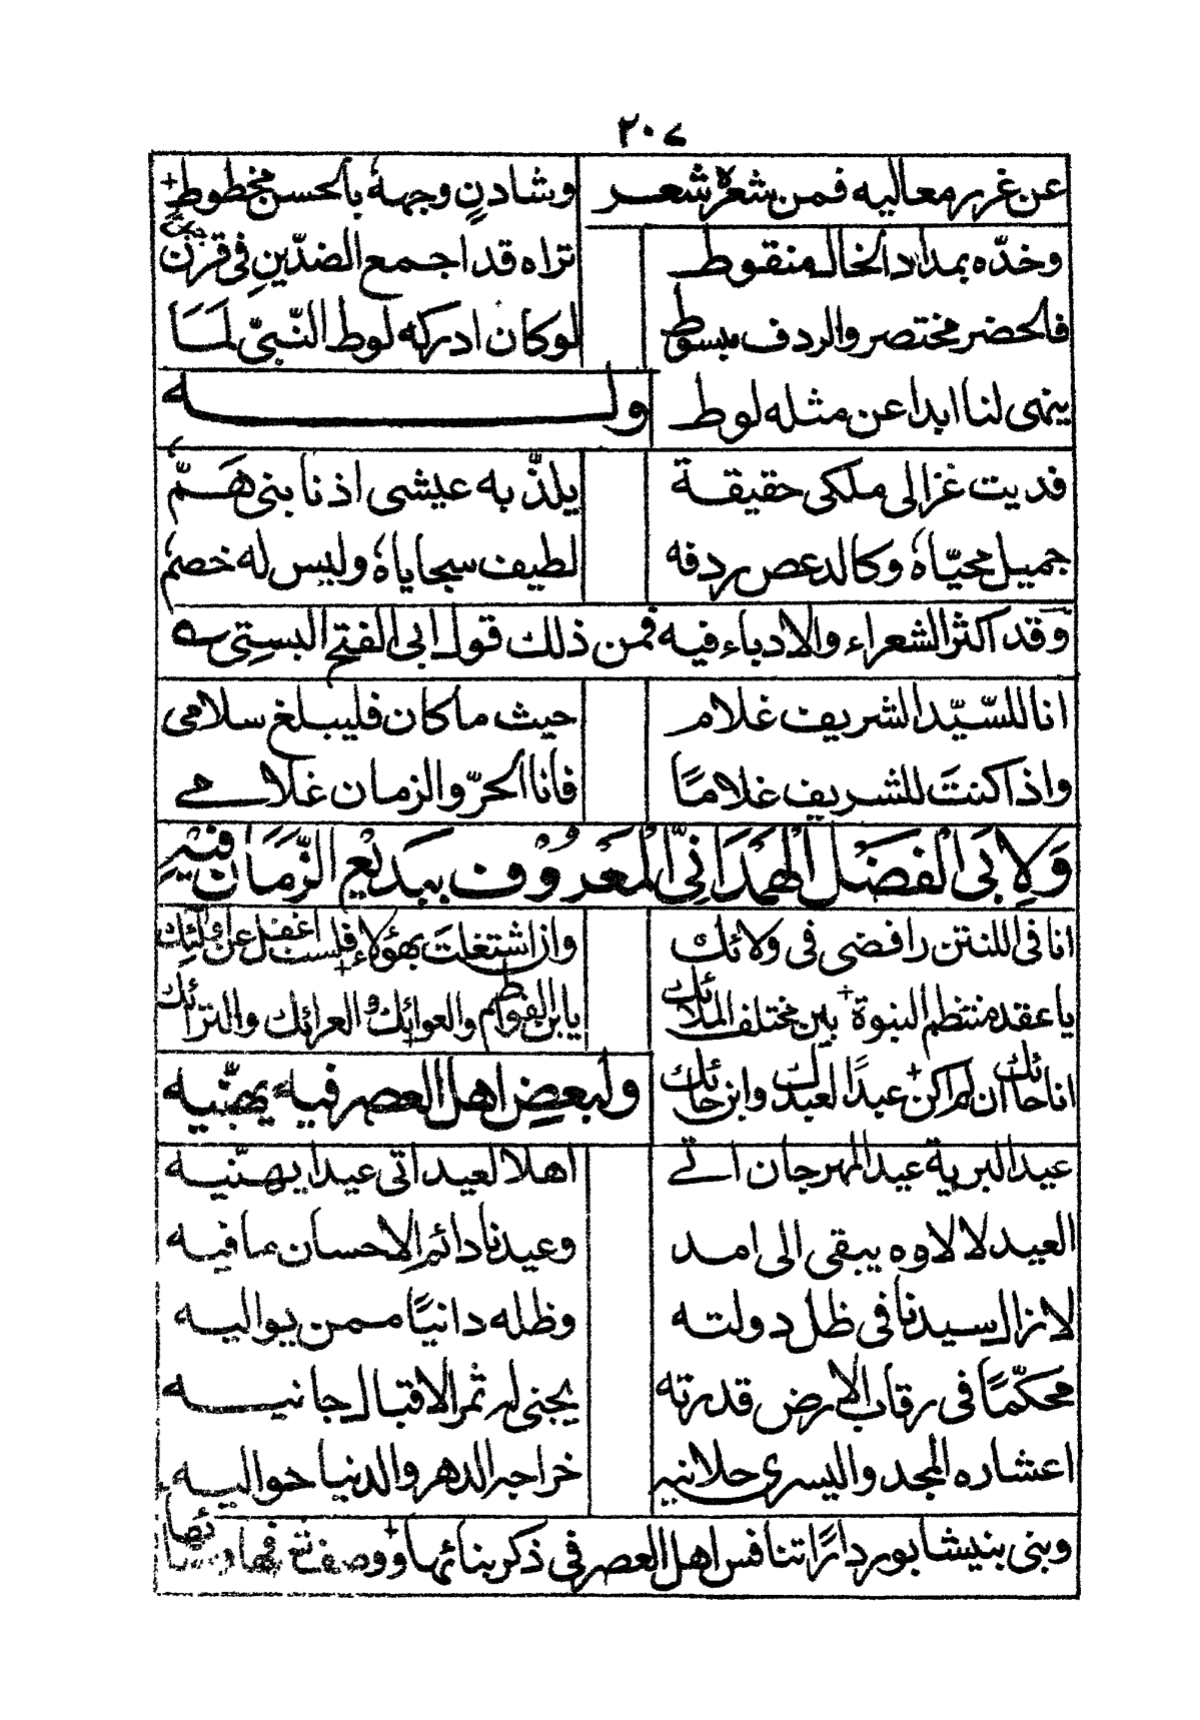 ٢٠٧
عن غرر معاليه فمن شعره شعر وشادنٍ وجهه بالحسن مخطوط
وخدّه بمداد الخال منقوط تراه قد اجمع الضدّين في قرن
فالخصر مختصر والردف مبسوط لو كان ادركه لوط النّبيّ لمَا
ينهى لنا ابدا عن مثله لوط وله
فديت غزالى ملكى حقيقة يلذّ به عيشى اذ نابنى هَمّ
جميل محيّاه وكالدعص ردفه لطيف سجاياه وليس له خصم
وقد اكثر الشعراء والادباء فيه فمن ذلك قول ابى الفتح البستى
انا للسّيّد الشريف غلام حيث ما كان فليبلغ سلامى
واذا كنتَ للشريف غلامًا فانا الحرّ والزمان غلامى
وَلِاَبى الْفَضْلِ الْهَمَدَانِىّ الْمَعْرُوف ببديع الزّمَان فيْهِ
انا فى للتنن رافضى فى ولائك وان اشتغلتَ بهؤلاء فلست اغفل عن اولئك
يا عقد منتظم النبوة بين مختلف الملائك يا بن الفواطم والعواتك والعرائك والترائك
انا حائك ان لم اكن عبدًا لعبدك وابن حائك ولبعض اهل العصر فيه يهنّيه
عيد البرية عيد المهرجان اتى اهلا لعيد اتى عيدا يهنّيه
العيد لالاوه يبقى الى امد وعيدنا دائم الاحسان ما فيه
لازال سيدنا فى ظل دولته وظله دانيًا ممن يواليه
محكّمًا فى رقاب الارض قدرته يجنى له ثمر الاقبال جانيه
اعشاره المجد واليسرى حلانيه خراجه الدهر والدنيا حواليه
وبنى بنيشابور دارًا تنافس اهل العصر فى ذكر بنائها ووصف